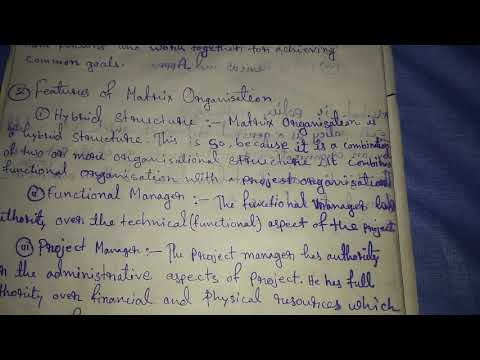 more persons are work together for achieving
common goals.
② Features of Matrix Organisation
① Hybrid Structure :- Matrix Organisation is
a hybrid structure. This is so, because it is a combination
of two or more organisational structure. It combines
functional organisation with a project organisation
② Functional Manager :- The functional manager has
authority over the technical (functional) aspect of the project
③ Project Manager :- The project manager has authority
the administrative aspects of project. He has full
authority over financial and physical resources which